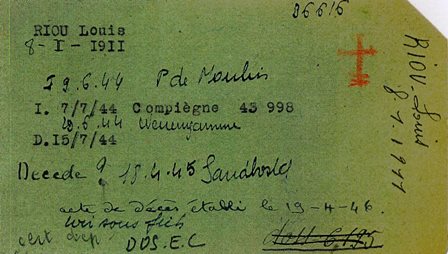 36616
RIOU Louis
8-I-1911
I 9.6.44 P de Moulin
I. 7/7/44 Compiègne 43 998
10.6.44 Wenengamme
D.15/7/44
Décédé ? 15.4.45 Sandbostel
acte de décès établi le 19-4-46.
voir sous fich
cert dep DOS.E.C
RIOU. Louis
8.1.1911